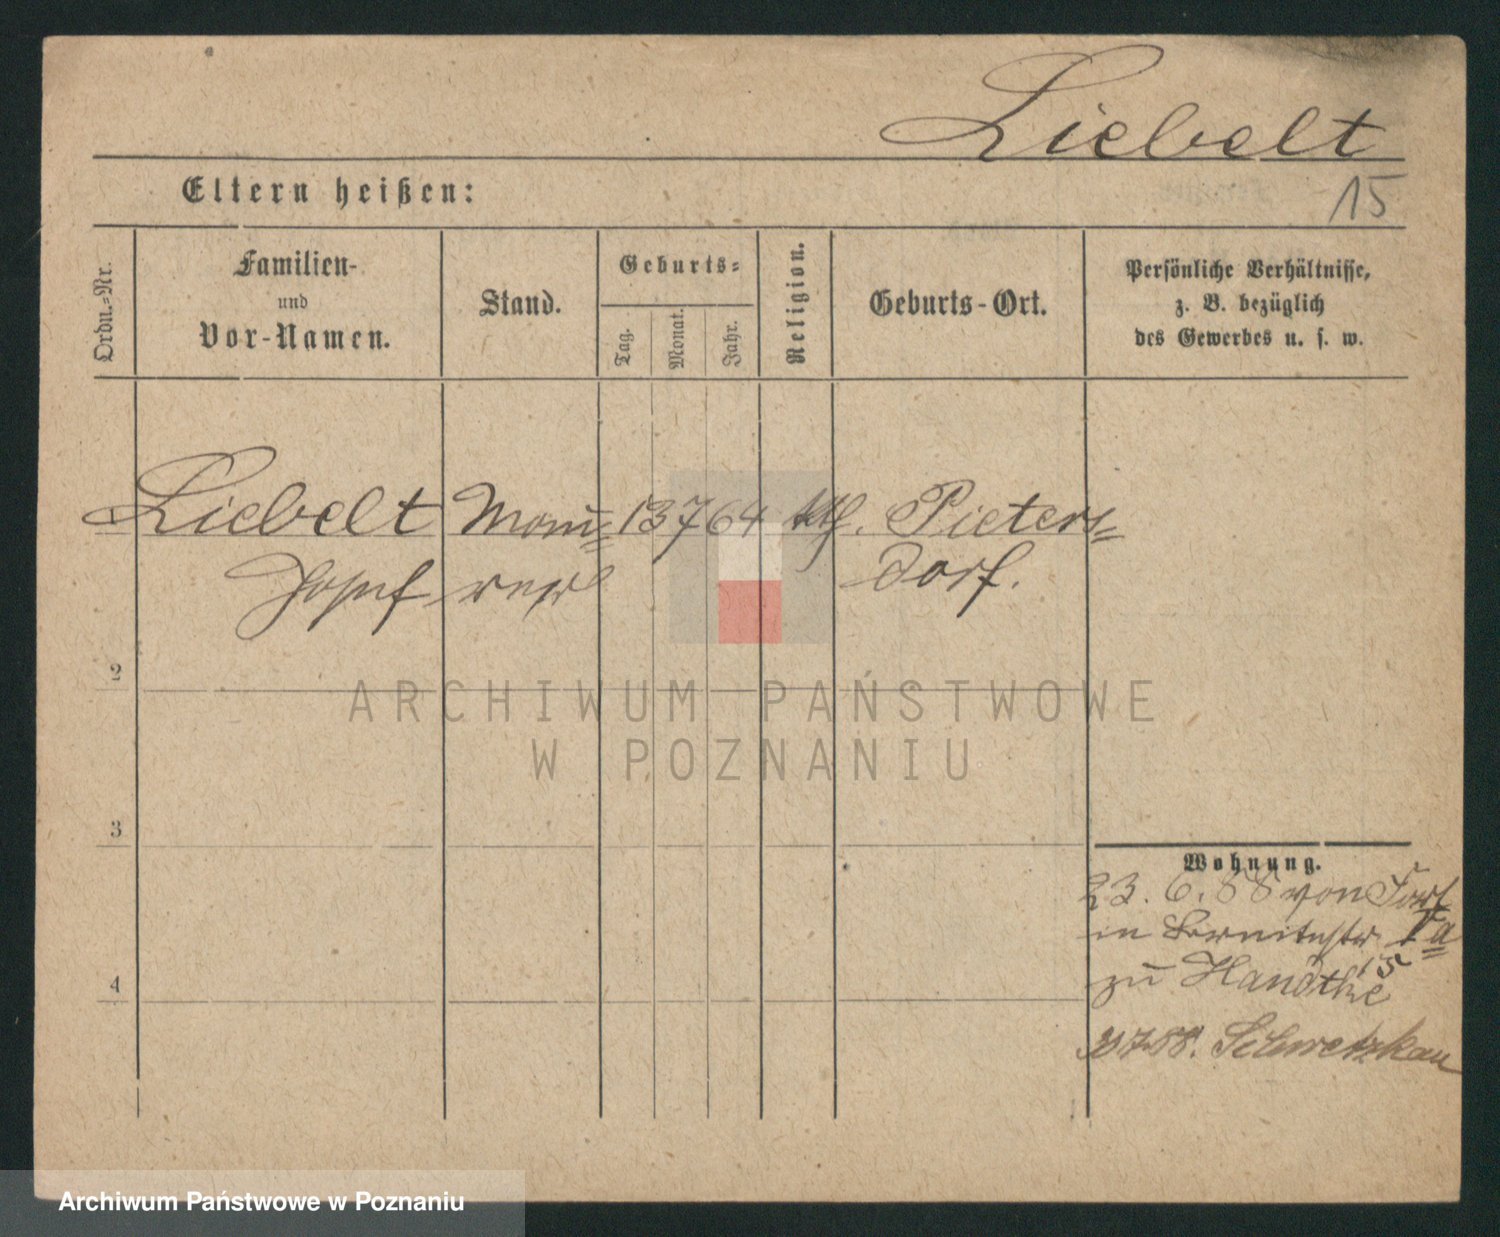 Liebelt
15
Eltern heißen:
Ordn.-Nr.
Familien-
und
Vor-Namen.
Stand.
Geburts-
Tag.
Monat.
Jahr.
Religion.
Geburts-Ort.
Persönliche Verhältnisse,
z. B. bezüglich
des Gewerbes u. s. w.
Liebelt Mau= 13 7 64 kth. Pieters=
Josef rer dorf.
2
ARCHIWUM PAŃSTWOWE
W POZNANIU
3
Wohnung.
23. 6. 88 von Fort
in Va
15
4
zu
88. Schwetzkau
Archiwum Państwowe w Poznaniu